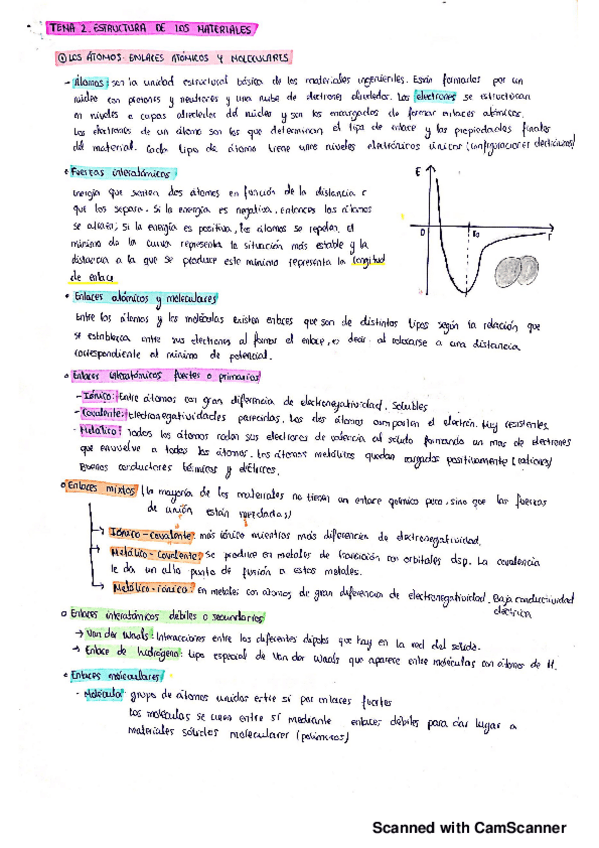 TEMA 2. ESTRUCTURA DE LOS MATERIALES
① LOS ÁTOMOS. ENLACES ATÓMICOS Y MOLECULARES
- Átomos: son la unidad estructural básica de los materiales ingenieriles. Están formados por un
núcleo con protones y neutrones y una nube de electrones alrededor. Los electrones se estructuran
en niveles o capas alrededor del núcleo y son los encargados de formar enlaces atómicos.
Los electrones de un átomo son los que determinan el tipo de enlace y las propiedades finales
del material. Cada tipo de átomo tiene unos niveles electrónicos únicos (configuraciones electrónicas)
• Fuerzas interatómicas:
Energía que sienten dos átomos en función de la distancia r
que los separa. Si la energía es negativa, entonces los átomos
se atraen; si la energía es positiva, los átomos se repelen. El
mínimo de la curva representa la situación más estable y la
distancia a la que se produce este mínimo representa la longitud
de enlace
E
0
r0
r
• Enlaces atómicos y moleculares
Entre los átomos y las moléculas existen enlaces que son de distintos tipos según la relación que
se establezca entre sus electrones al formar el enlace, es decir, al colocarse a una distancia
correspondiente al mínimo de potencial.
o Enlaces interatómicos fuertes o primarios
- Iónico: Entre átomos con gran diferencia de electronegatividad. Solubles
- Covalente: Electronegatividades parecidas. Los dos átomos comparten el electrón. Muy resistentes.
- Metálico: Todos los átomos ceden sus electrones de valencia al sólido formando un mar de electrones
que envuelve a todos los átomos. Los átomos metálicos quedan cargados positivamente (cationes)
Buenos conductores térmicos y eléctricos.
o Enlaces mixtos (la mayoría de los materiales no tienen un enlace químico puro, sino que las fuerzas
de unión están mezcladas)
→ Iónico-covalente: más iónico mientras más diferencia de electronegatividad.
→ Metálico-covalente: Se produce en metales de transición con orbitales dsp. La covalencia
le da un alto punto de fusión a estos metales.
→ Metálico-iónico: En metales con átomos de gran diferencia de electronegatividad. Baja conductividad
eléctrica
o Enlaces interatómicos débiles o secundarios
→ Van der Waals: Interacciones entre los diferentes dipolos que hay en la red del sólido.
→ Enlace de hidrógeno: tipo especial de Van der Waals que aparece entre moléculas con átomos de H.
• Enlaces moleculares
- Molécula: grupo de átomos unidos entre sí por enlaces fuertes
Las moléculas se unen entre sí mediante enlaces débiles para dar lugar a
materiales sólidos moleculares (polímeros)
Scanned with CamScanner